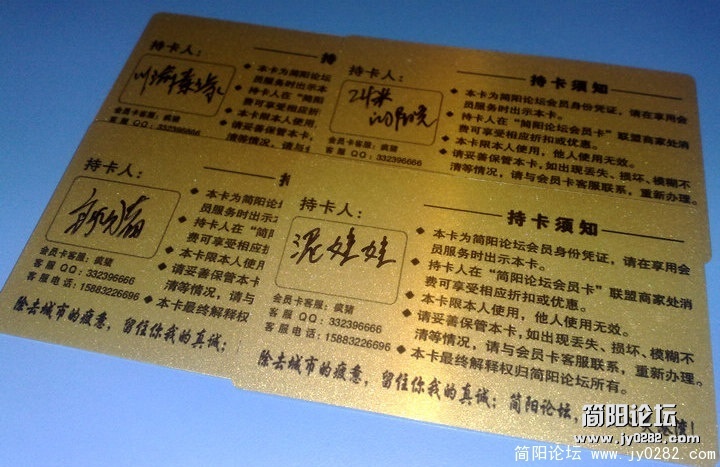 持卡人：
持
本卡为简阳论坛
员服务时出示本
持卡人在“简
费可享受相应折
本卡限本人使
请妥善保管本卡
清等情况，请与
客服QQ：332396666
持卡人：
持卡须知
24米
的阳光
本卡为简阳论坛会员身份凭证，请在享用会
员服务时出示本卡。
持卡人在“简阳论坛会员卡”联盟商家处消
费可享受相应折扣或优惠。
本卡限本人使用，他人使用无效。
请妥善保管本卡，如出现丢失、损坏、模糊不
清等情况，请与会员卡客服联系，重新办理。
会员卡客服：疯猪
客服QQ：332396666
持卡人：
本卡为简阳论
员服务时出示
持卡人在“简
费可享受相应
本卡限本人使用
请妥善保管本卡
清等情况，请与
本卡最终解释权
会员卡客服：疯猪
客服QQ：332396666
客服电话：15883226696
除去城市的疲惫，留住你我的真诚；
持卡人：
持卡须知
泥娃娃
本卡为简阳论坛会员身份凭证，请在享用会
员服务时出示本卡。
持卡人在“简阳论坛会员卡”联盟商家处消
费可享受相应折扣或优惠。
本卡限本人使用，他人使用无效。
请妥善保管本卡，如出现丢失、损坏、模糊不
清等情况，请与会员卡客服联系，重新办理。
本卡最终解释权归简阳论坛所有。
会员卡客服：疯猪
客服QQ：332396666
客服电话：15883226696
除去城市的疲惫，留住你我的真诚；简阳论坛，
简阳论坛
www.jy0282.com
简阳论坛 www.jy0282.com